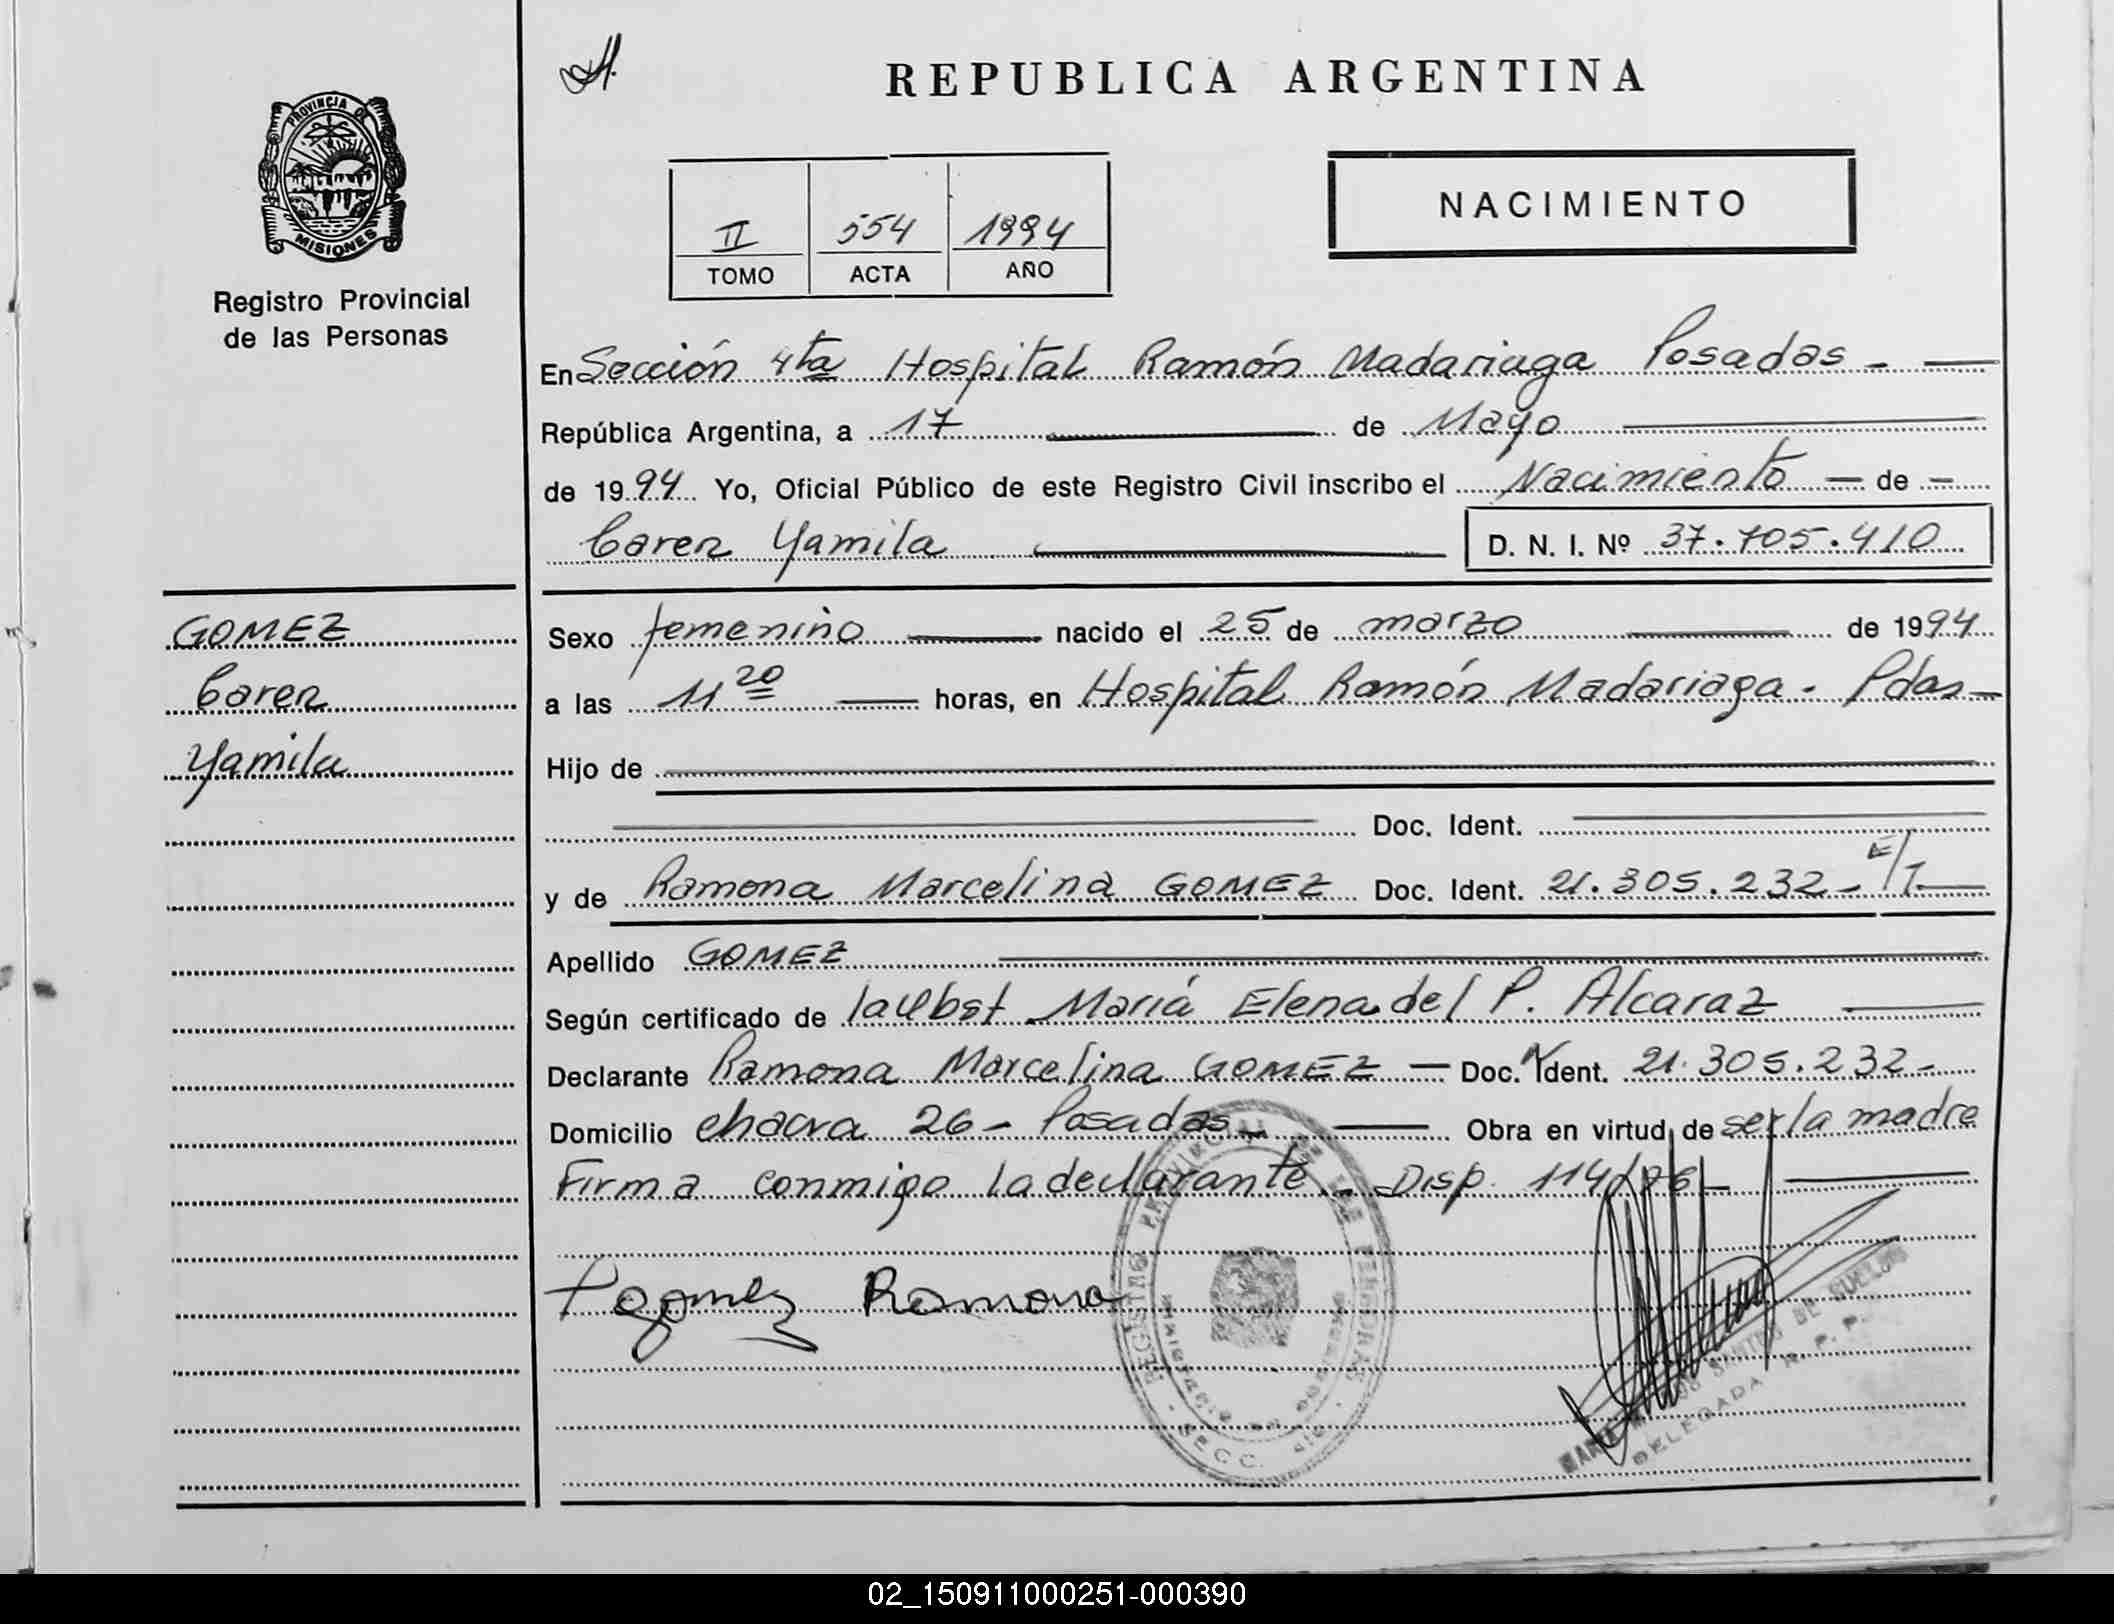 REPUBLICA ARGENTINA
PROVINCIA DE
MISIONES
Registro Provincial
de las Personas
II 554 1994
TOMO ACTA AÑO
NACIMIENTO
En Sección 4ta Hospital Ramón Madariaga Posadas -
República Argentina, a 17 de Mayo
de 1994 Yo, Oficial Público de este Registro Civil inscribo el Nacimiento - de -
Caren Yamila D. N. I. Nº 37.705.410
GOMEZ
Caren
Yamila
Sexo femenino nacido el 25 de marzo de 1994
a las 11 20 horas, en Hospital Ramón Madariaga - Pdas -
Hijo de
Doc. Ident.
y de Ramona Marcelina GOMEZ Doc. Ident. 21.305.232 - E/T
Apellido GOMEZ
Según certificado de la Obst María Elena del P. Alcaraz
Declarante Ramona Marcelina GOMEZ - Doc. Ident. 21.305.232 -
Domicilio chacra 26 - Posadas - Obra en virtud de ser la madre
Firma conmigo la declarante - Disp. 114/76 -
Gomez Ramona
REGISTRO PROVINCIAL DE LAS PERSONAS
DE SUELDO
DELEGADA R. P. P.
02_150911000251-000390